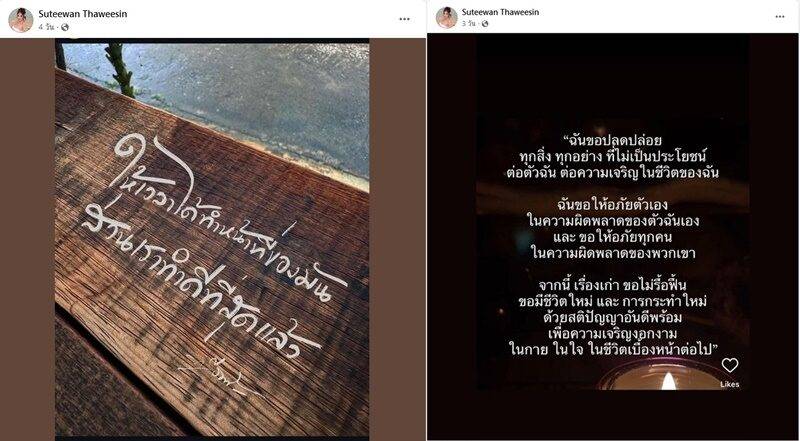 Suteewan Thaweesin
4 วัน ·
ให้เวลาได้ทำหน้าที่ของมัน
ส่วนเราทำดีที่สุดแล้ว
Suteewan Thaweesin
3 วัน ·
“ฉันขอปลดปล่อย
ทุกสิ่ง ทุกอย่าง ที่ไม่เป็นประโยชน์
ต่อตัวฉัน ต่อความเจริญในชีวิตของฉัน
ฉันขอให้อภัยตัวเอง
ในความผิดพลาดของตัวฉันเอง
และ ขอให้อภัยทุกคน
ในความผิดพลาดของพวกเขา
จากนี้ เรื่องเก่า ขอไม่รื้อฟื้น
ขอมีชีวิตใหม่ และ การกระทำใหม่
ด้วยสติปัญญาอันดีพร้อม
เพื่อความเจริญงอกงาม
ในกาย ในใจ ในชีวิตเบื้องหน้าต่อไป”
Likes